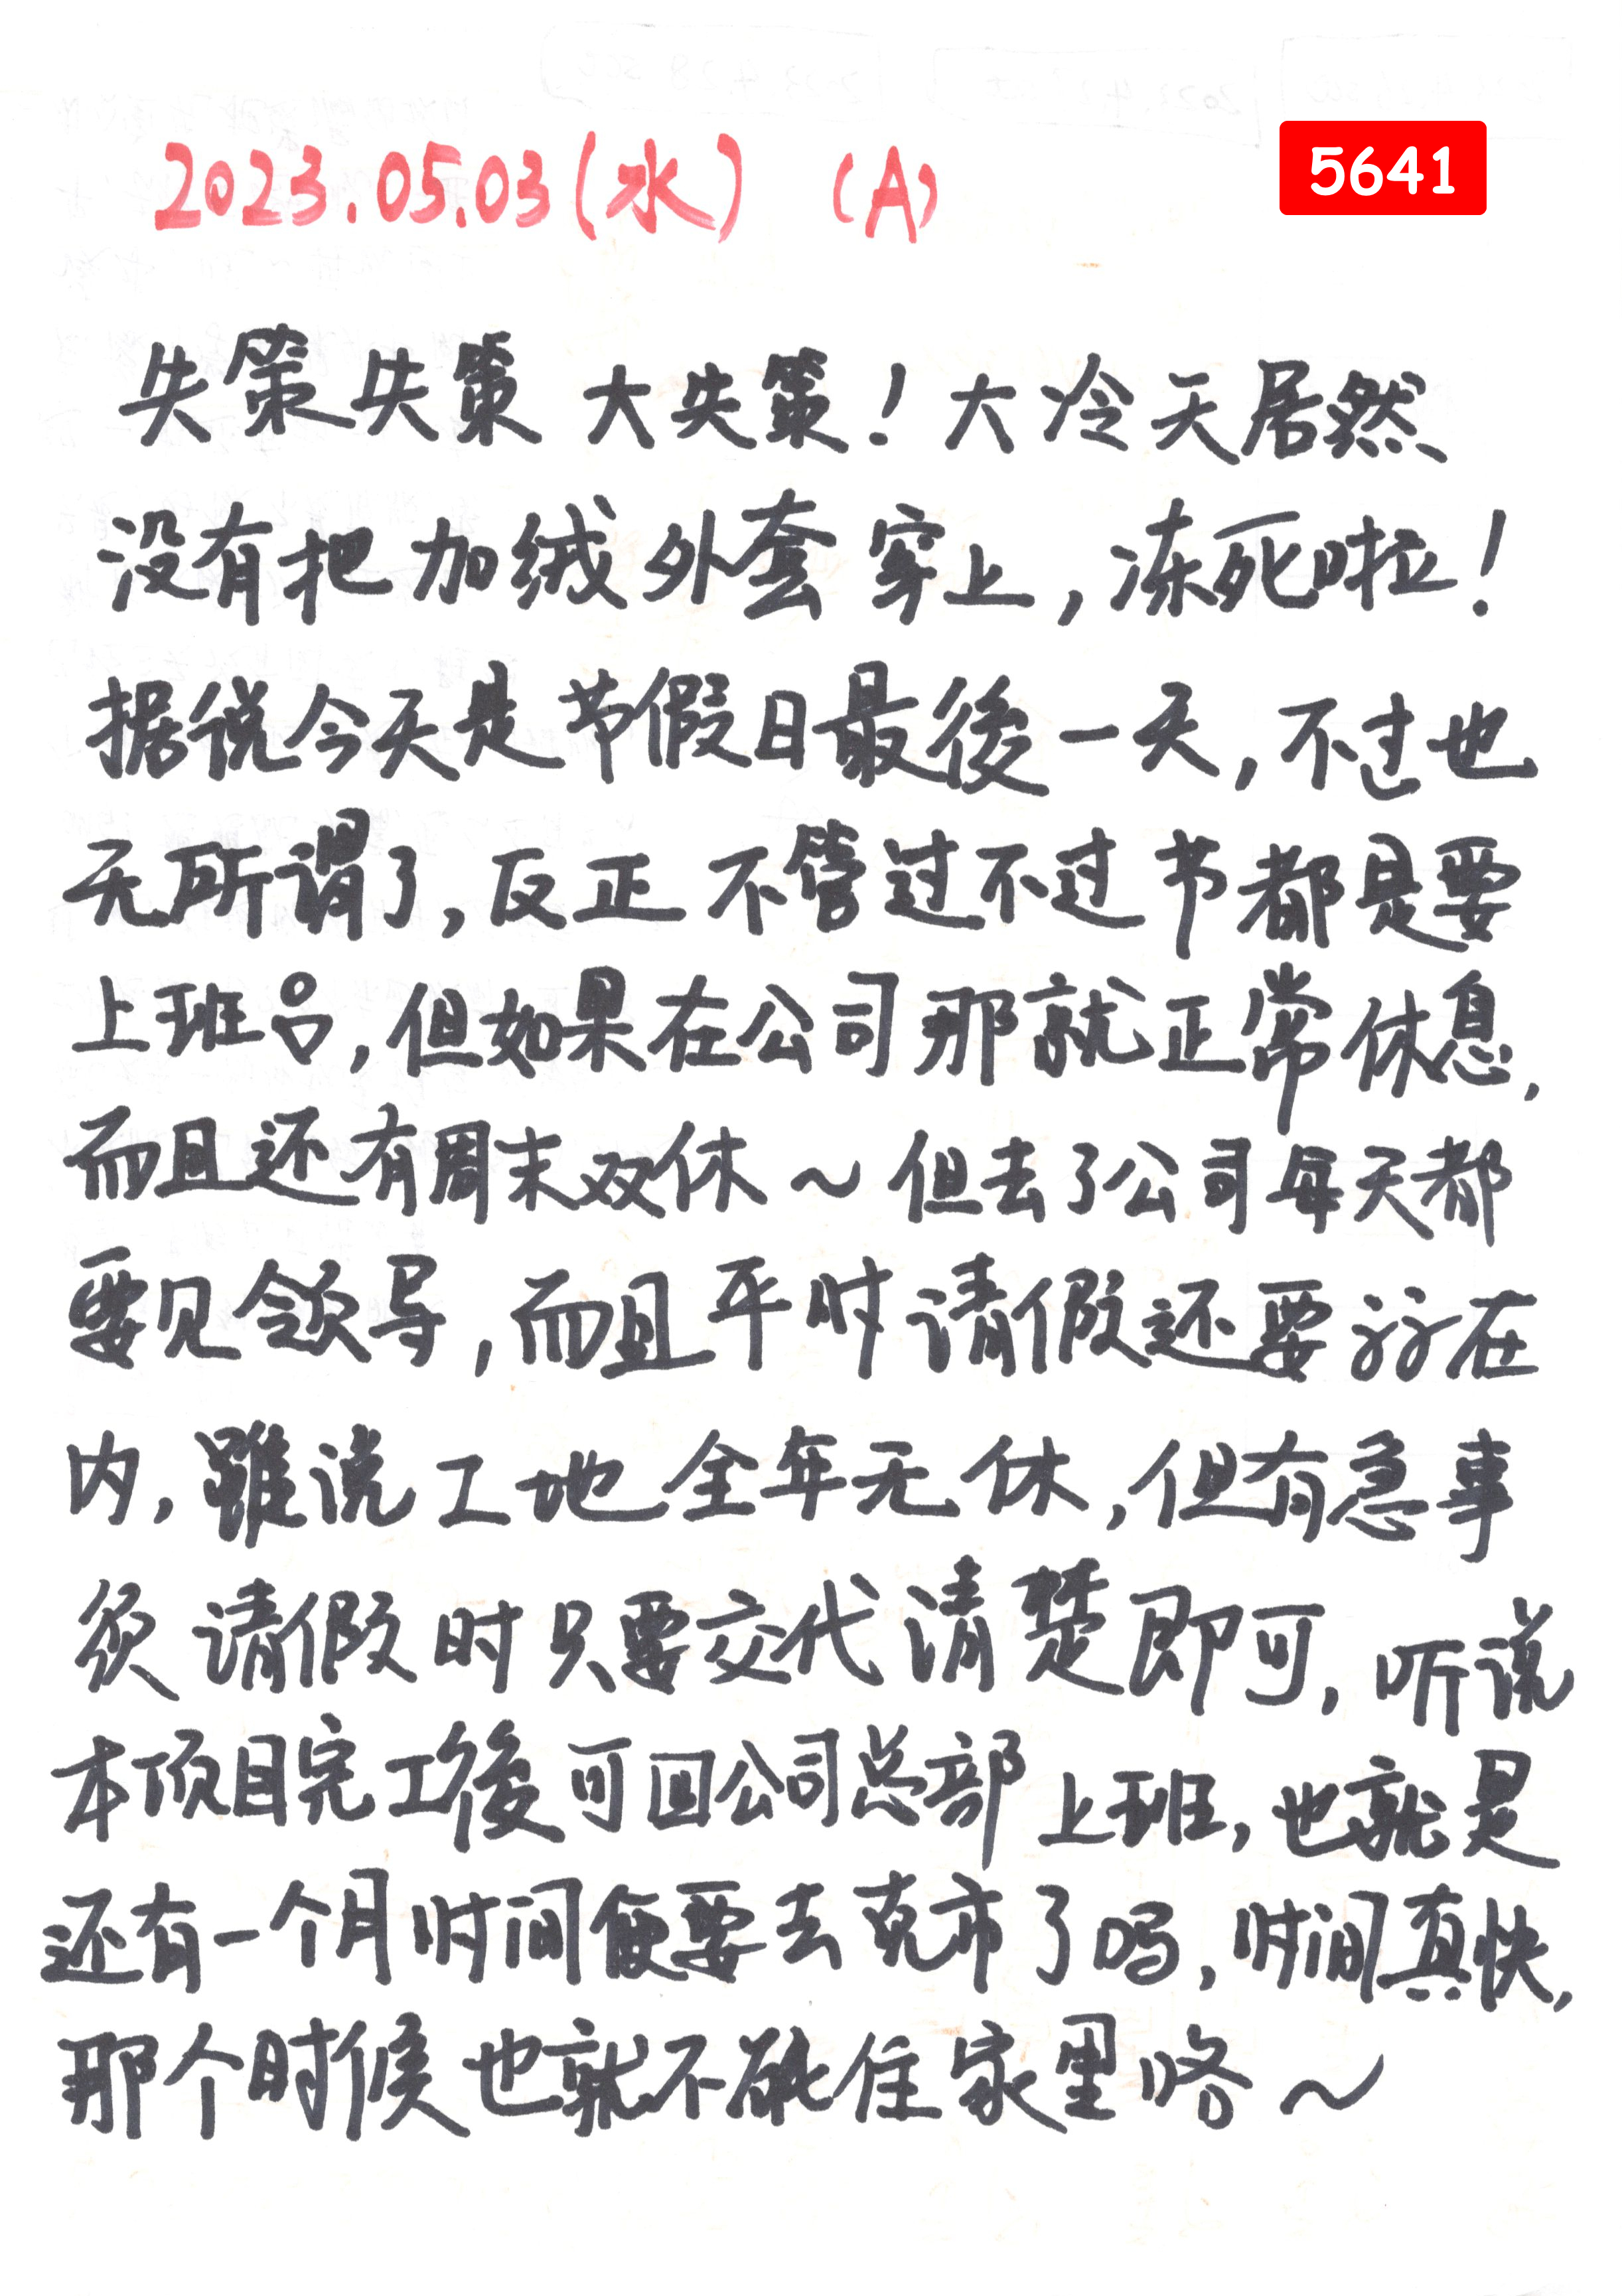 2023.05.03(水) (A)
5641
失策失策 大失策！大冷天居然
没有把加绒外套穿上，冻死啦！
据说今天是节假日最後一天，不过也
无所谓了，反正不管过不过节都是要
上班吕，但如果在公司那就正常休息，
而且还有周末双休～但去了公司每天都
要见领导，而且平时请假还要在
内，雖说工地全年无休，但有急事
须请假时只要交代清楚即可，听说
本项目完工後可回公司总部上班，也就是
还有一个月时间便要去克市了吗，时间真快，
那个时候也就不能住家里咯～